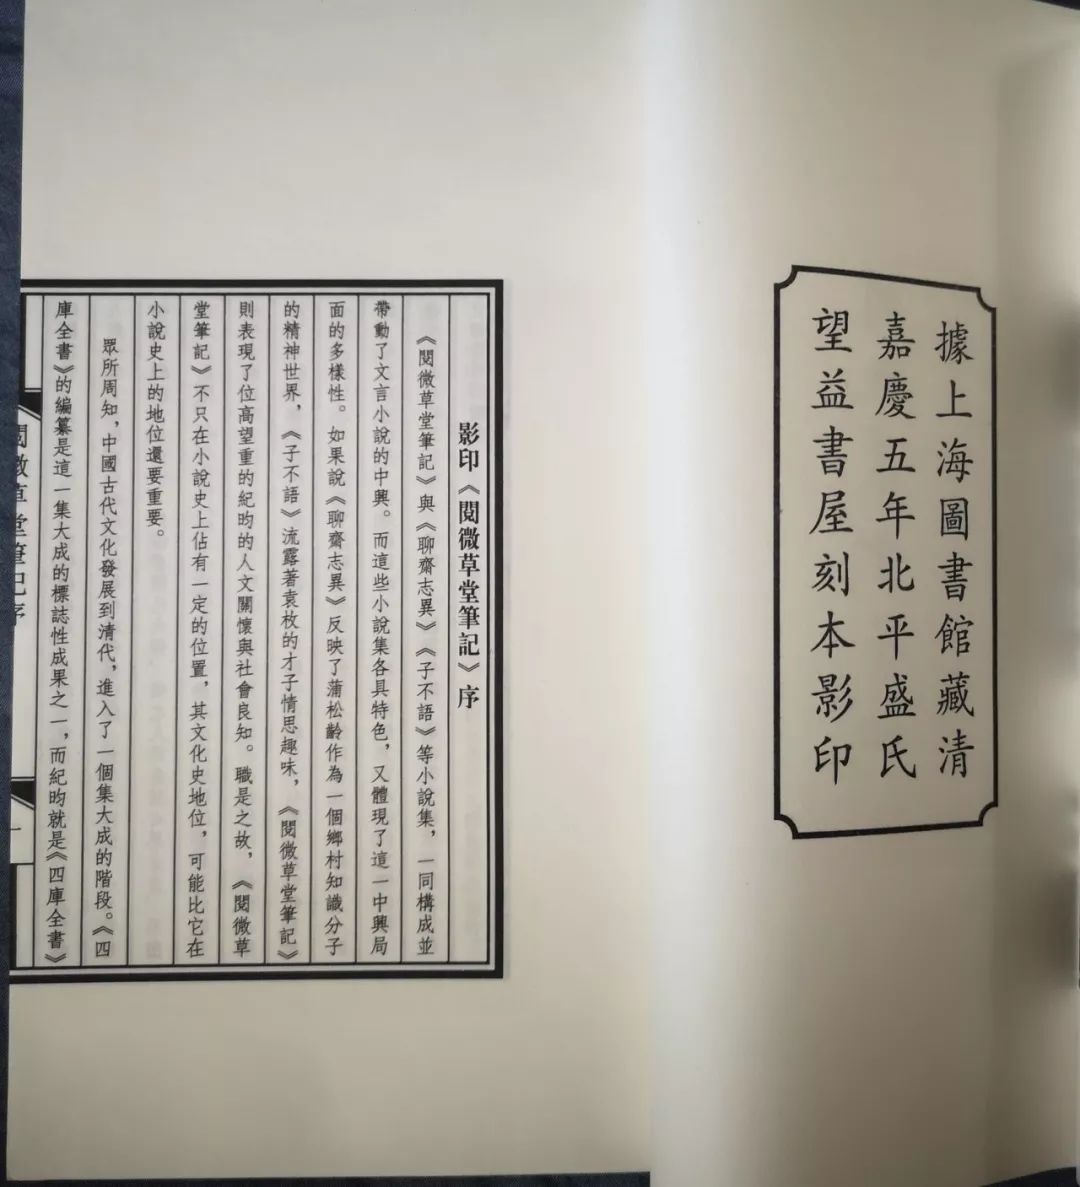 據上海圖書館藏清
嘉慶五年北平盛氏
望益書屋刻本影印
影印《閱微草堂筆記》序
《閱微草堂筆記》與《聊齋志異》《子不語》等小說集，一同構成並
帶動了文言小說的中興。而這些小說集各具特色，又體現了這一中興局
面的多樣性。如果說《聊齋志異》反映了蒲松齡作為一個鄉村知識分子
的精神世界，《子不語》流露著袁枚的才子情思趣味，《閱微草堂筆記》
則表現了位高望重的紀昀的人文關懷與社會良知。職是之故，《閱微草
堂筆記》不只在小說史上佔有一定的位置，其文化史地位，可能比它在
小說史上的地位還要重要。
眾所周知，中國古代文化發展到清代，進入了一個集大成的階段。《四
庫全書》的編纂是這一集大成的標誌性成果之一，而紀昀就是《四庫全書》
閱微草堂筆記序
一